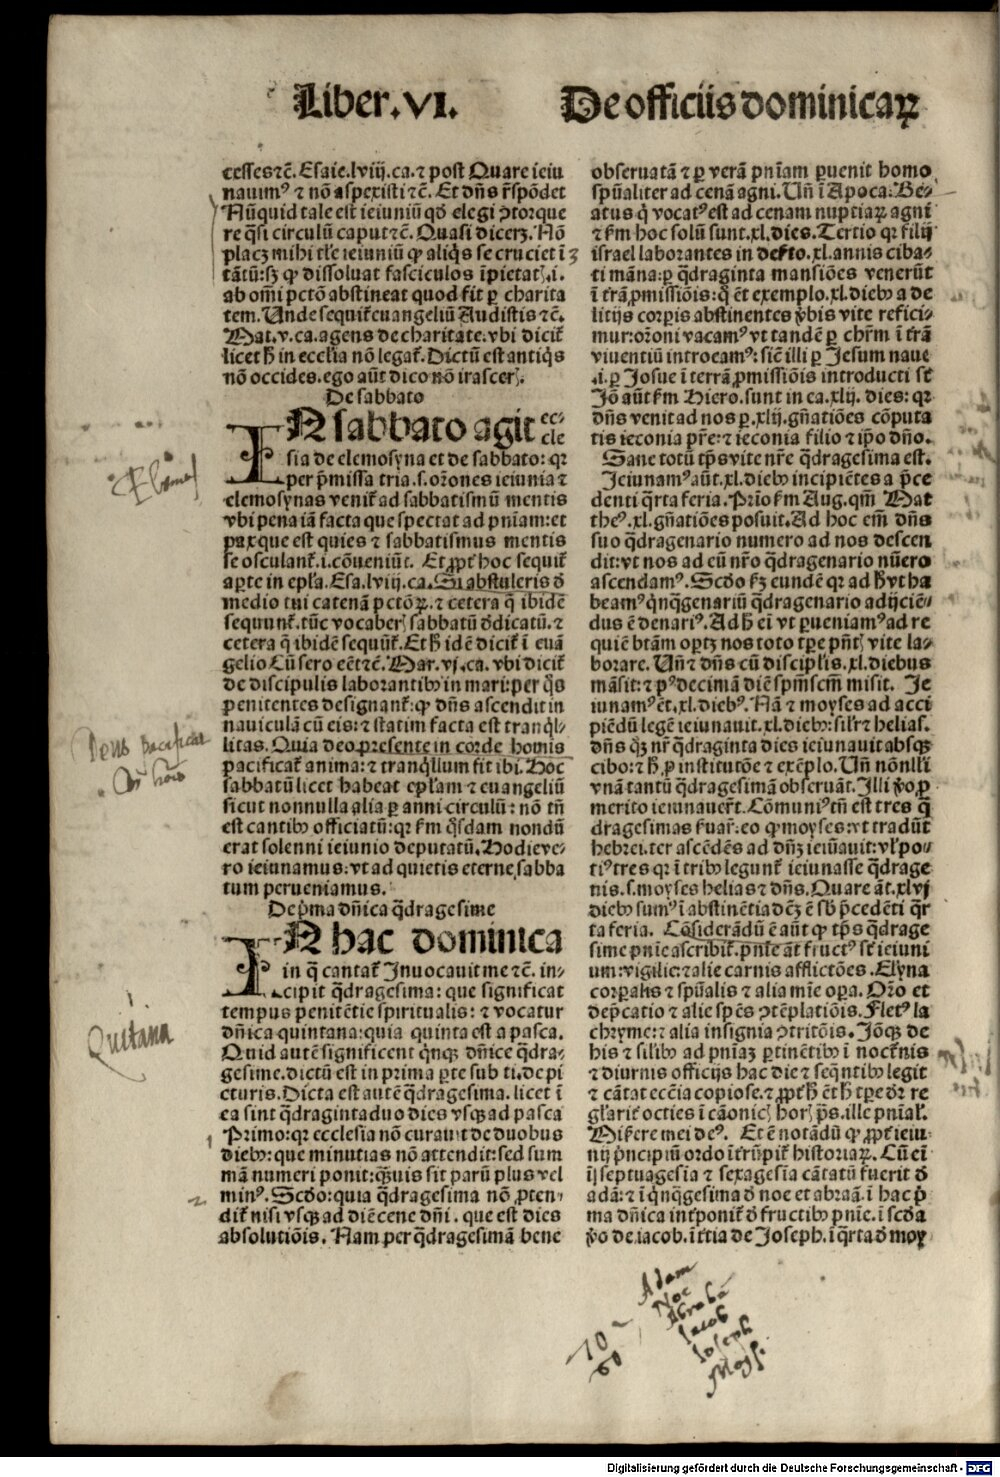 Liber.VI. De officiis dominicaꝝ
cesses ⁊c̄. Esaie.lviij.ca.⁊ post Quare ieiu
nauimꝰ ⁊ nō aspexisti ⁊c̄. Et dn̄s r̄spōdet
Nūquid tale est ieiuniū qd̄ elegi ꝯtorque
re q̄si circulū caput ⁊c̄. Quasi diceret. Nō
placꝫ mihi tl̄e ieiuniū ꝙ aliq̄s se cruciet ī
tātū:sꝫ ꝙ dissoluat fasciculos īpietatꝭ.i.
ab omī pctō abstineat quod fit ꝑ charita
tem. Unde sequit̄ euangeliū Audistis ⁊c̄.
Mat.v.ca.agens de charitate.vbi dicit̄
licet h̄ in ecclīa nō legat̄. Dictū est antiq̄s
nō occides.ego aūt dico nō irascerꝭ.
De sabbato
IN sabbato agit ec-
cle
sia de elemosyna et de sabbato: qꝛ
per p̄missa tria.s.orōnes ieiunia ⁊
elemosynas venit̄ ad sabbatismū mentis
vbi pena iā facta que spectat ad pn̄iam:et
pax que est quies ⁊ sabbatismus mentis
se osculant̄.i.cōueniūt. Et ꝓpt̄ hoc sequit̄
aꝑte in epl̄a.Esa.lviij.ca. Si abstuleris d̄
medio tui catenā pctōꝝ.⁊ cetera q̄ ibidē
sequunt̄.tūc vocaberꝭ sabbatū d̄dicatū.⁊
cetera q̄ ibidē sequūt̄. Et h̄ idē dicit̄ ī euā
gelio Cū sero eēt ⁊c̄. Mar.vj.ca. vbi dicit̄
de discipulis laborantibꝰ in mari:per q̄s
penitentes designant̄:ꝙ dn̄s ascendit in
nauiculā cū eis:⁊ statim facta est tranq̇l-
litas. Quia deo presente in corde homis
pacificat̄ anima:⁊ tranq̇llum fit ibi. Hoc
sabbatū licet habeat epl̄am ⁊ euangeliū
sicut nonnulla alia ꝑ anni circulū: nō tn̄
est cantibꝰ officiatū:qꝛ fm q̄sdam nondū
erat solenni ieiunio deputatū. Hodie ve-
ro ieiunamus:vt ad quietis eterne sabba
tum perueniamus.
De pͥma dn̄ica q̄dragesime
IN hac dominica
in q̄ cantat̄ Inuocauit me ⁊c̄. in-
cipit q̄dragesima: que significat
tempus penitētie spiritualis: ⁊ vocatur
dn̄ica quintana:quia quinta est a pasca.
Quid autē significent q̇nqꝫ dn̄ice q̄dra-
gesime.dictū est in prima ꝑte sub ti.de pi
cturis. Dicta est autē q̄dragesima. licet ī
ea sint q̄draginta duo dies vsqꝫ ad pasca
Primo:qꝛ ecclesia nō curauit de duobus
diebꝰ:que minutias nō attendit:sed sum
mā numeri ponit:q̄uis sit parū plus vel
minꝰ. Scd̄o:quia q̄dragesima nō ꝓten-
dit̄ nisi vsqꝫ ad diē cene dn̄i. que est dies
absolutiōis. Nam per q̄dragesimā bene
obseruatā ⁊ ꝑ verā pn̄iam ꝑuenit homo
spūaliter ad cenā agni. Un̄ ī Apoca. Be-
atus q̇ vocatꝰ est ad cenam nuptiaꝝ agni
⁊ fm hoc solū sunt.xl.dies. Tertio qꝛ filij
israel laborantes in defto.xl.annis ciba-
ti māna:ꝑ q̄draginta mansiōes venerūt
ī t̄rā ꝓmissiōis:q̇ ēt exemplo.xl.diebꝰ a de
litijs corpis abstinentes v̄bis vite refici-
mur:orōni vacamꝰ vt tandē ꝑ chr̄m ī t̄rā
viuentiū introeamꝰ:sic̄ illi ꝑ Jesum naue
.i.ꝑ Josue ī terrā ꝓmissiōis introducti st̄
Jō aūt fm Hiero.sunt in ca.xlij. dies: qꝛ
dn̄s venit ad nos ꝑ.xlij.gn̄atiōes cōputa
tis ieconia pr̄e:⁊ ieconia filio ⁊ ip̄o dn̄o.
Sane totū tp̄s vite nr̄e q̄dragesima est.
Jeiunamꝰ aūt.xl.diebꝰ incipiētes a p̄ce
denti q̄rta feria. Prīo fm Aug.qm̄ Mat
theꝰ.xl.gn̄atiōes posuit. Ad hoc em̄ dn̄s
suo q̄dragenario numero ad nos descen
dit:vt nos ad eū nr̄o q̄dragenario nūero
ascendamꝰ. Scd̄o fꝫ eundē qꝛ ad h̄ vt ha
beamꝰ q̇nq̄genariū q̄dragenario adijciē-
dus ē denariꝰ. Ad h̄ ei vt ꝑueniamꝰ ad re
quiē btām oportꝫ nos toto tꝑe pn̄tꝭ vite la-
borare. Un̄ ⁊ dn̄s cū discipl̄is.xl.diebus
māsit:⁊ pꝰ decimā diē spm̄scm̄ misit. Je
iunamꝰ ēt.xl.diebꝰ. Nā ⁊ moyses ad acci
piēdū legē ieiunauit.xl.diebꝰ: sil̄r ⁊ helias.
dn̄s qꝫ nr̄ q̄draginta dies ieiunauit absqꝫ
cibo:⁊ h̄ ꝓ institutōe ⁊ exēplo. Un̄ nōnlli
vnā tantū q̄dragesimā obseruāt. Illi ṽo ꝓ
merito ieiunauer̄t. Cōmuniꝰ tn̄ est tres q̄
dragesimas fuar̄:eo ꝙ moyses:vt tradūt
hebrei.ter ascēdēs ad dn̄ꝫ ieiūauit:vl̄ po-
tiꝰ tres qꝛ ī tribꝰ legunt̄ ieiunasse q̄drage
nis.s.moyses helias ⁊ dn̄s. Quare aūt.xlvj
diebꝰ sumꝰ ī abstinētia dc̄ꝫ ē sb̄ p̄cedēti q̄r
ta feria. Cōsiderādū ē aūt ꝙ tp̄s q̄drage
sime pn̄ie ascribit̄.pn̄ie aūt fructꝰ st̄ ieiuni
um:vigilie:⁊ alie carnis afflictōes. Elyna
corꝑalis ⁊ spūalis ⁊ alia mīe oꝑa. Or̄o et
dep̄catio ⁊ alie spēs ꝯtēplatiōis. Fletꝰ la
chryme:⁊ alia insignia ꝯtritōis. Jōqꝫ de
his ⁊ sil̄ibꝰ ad pn̄iaꝫ ꝑtinētibꝰ ī noct̄nis
⁊ diurnis officijs hac die ⁊ seq̄ntibꝰ legit
⁊ cātat ecc̄ia copiose.⁊ ꝓpt̄ h̄ ēt h̄ tꝑe d̄r re
gl̄arit̄ octies ī cānonicꝭ horꝭ ps̄.ille pn̄ial̄.
Miserere mei deꝰ. Et ē notādū ꝙ ꝓpt̄ ieiu-
nij pͥncipiū ordo īt̄rūpit̄ historiaꝝ. Cū ei
īī septuagesīa ⁊ sexagesīa cātatū fuerit d̄
adā:⁊ ī q̇nq̄gesima d̄ noe et abraā.ī hac pͥ
ma dn̄ica int̄ponit̄ d̄ fructibꝰ pn̄ie.ī scd̄a
ṽo de iacob.ī t̄tia de Joseph.ī q̄rta d̄ moy
Deus pacificat
Quitana
1
2
10
60
Adam
Noe
Abraha
Jacob
Joseph
Moys.
Digitalisierung gefördert durch die Deutsche Forschungsgemeinschaft - DFG